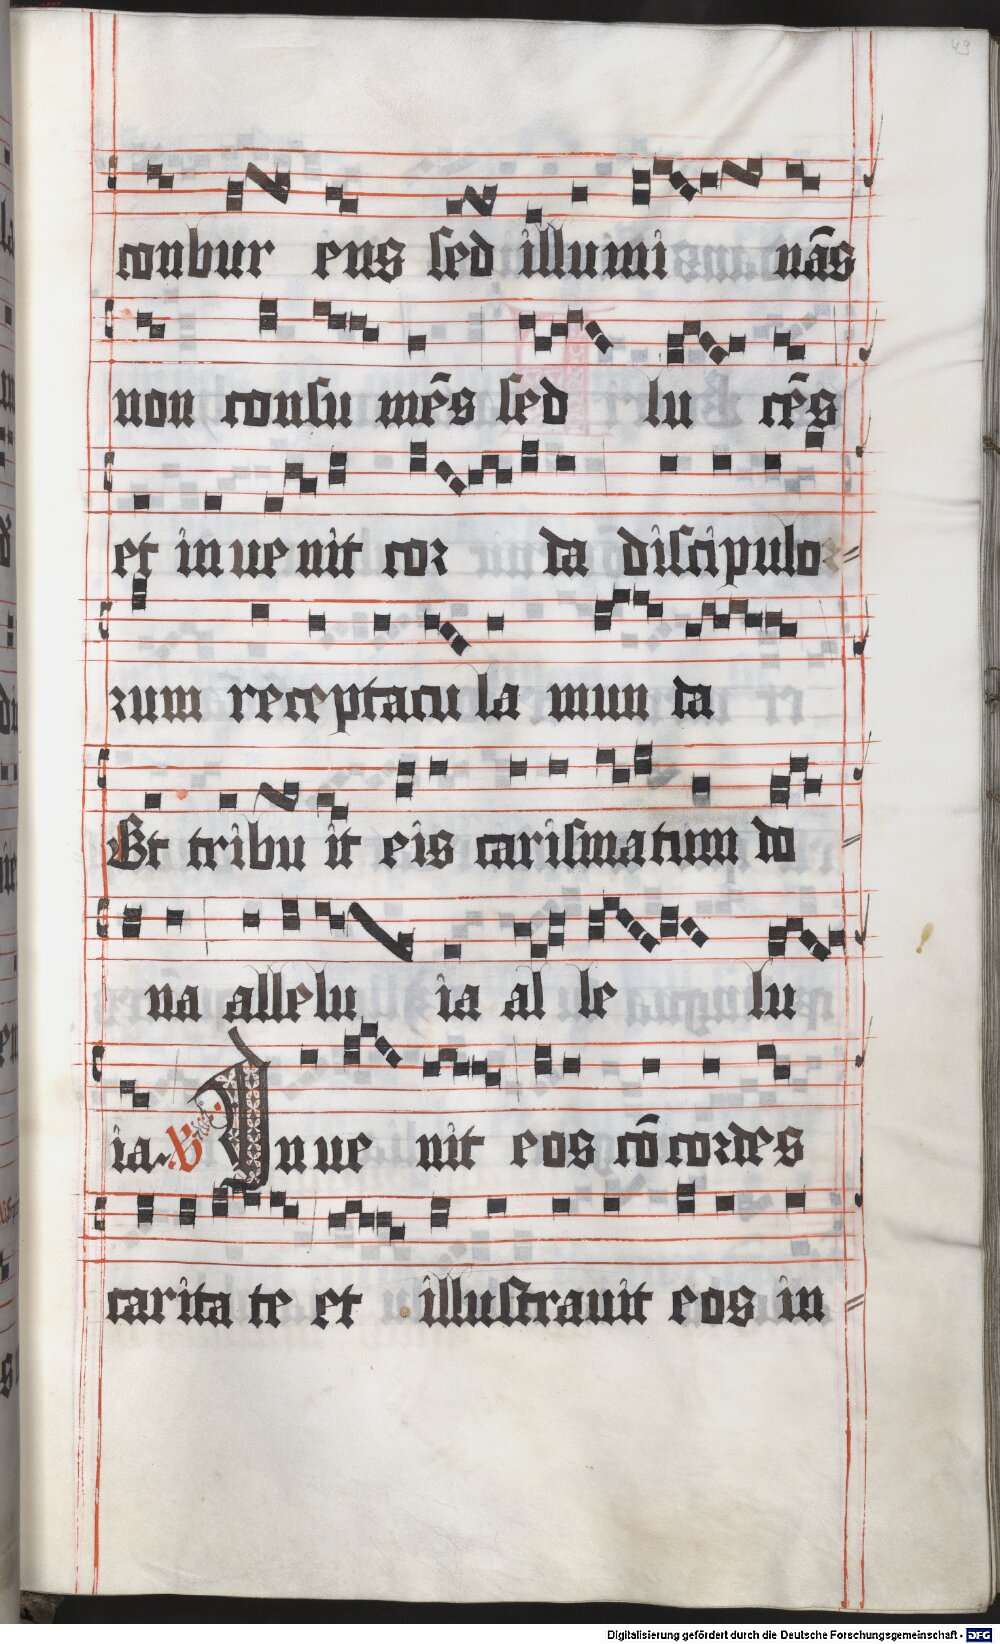 49
conbur ens sed illumi nās
non consu mēs sed lu cēs
et in ue nit cor da discipulo
rum receptacu la mun da
Et tribu it eis carismatum do
na allelu ia al le lu
ia. V In ue nit eos cō cordes
carita te et illustrauit eos in
Digitalisierung gefördert durch die Deutsche Forschungsgemeinschaft - DFG